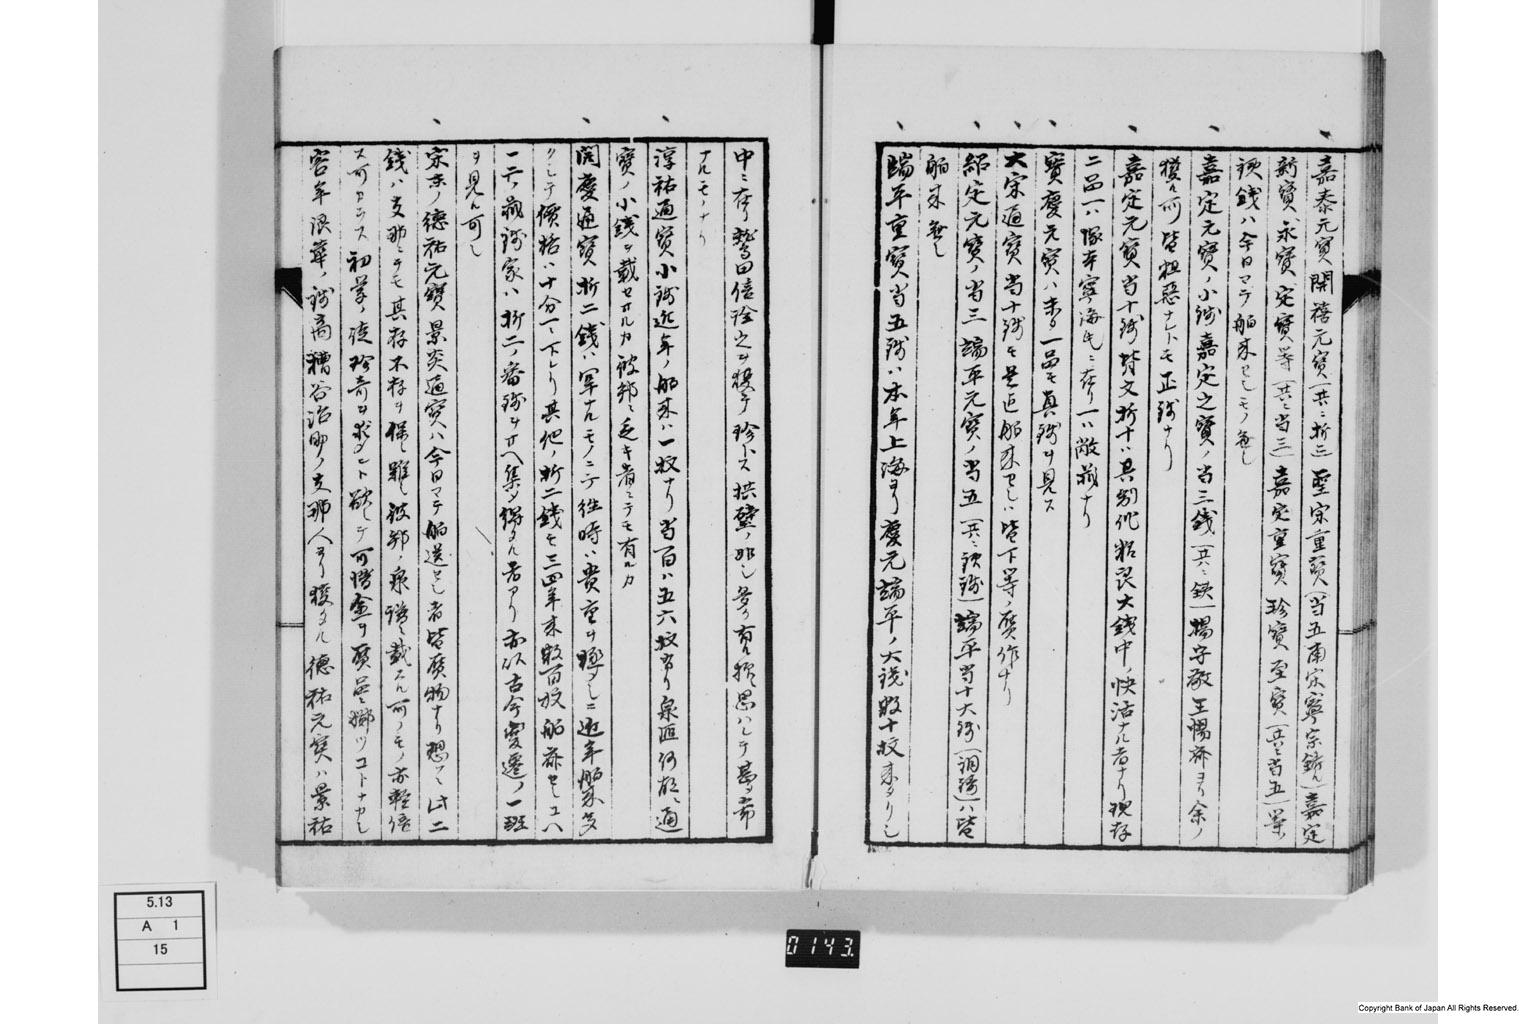 嘉泰元宝開禧元宝(共ニ折三)聖宋重宝(当五南宋寧宗鋳ル)嘉定
新宝永宝定宝等(共ニ当三)嘉定重宝珍宝至宝(共ニ当五)等
鉄銭ハ今日マデ舶来セシモノ無シ
嘉定元宝ノ小銭嘉定之宝ノ当三銭(共ニ鉄)楊守敬王惕斎ヨリ余ノ
獲ル所皆粗悪ナレトモ正銭ナリ
嘉定元宝当十銭背文折十ハ具別作精良大銭中ノ快活ナル者ナリ現存
二品一ハ塚本寧海氏ニ在リ一ハ敝蔵ナリ
宝慶元宝ハ未タ一品モ真銭ヲ見ス
大宋通宝当十銭モ是迄舶来セシハ皆下等ノ贋作ナリ
紹定元宝ノ当三端平元宝ノ当五(共ニ鉄銭)端平当十大銭(銅銭)ハ皆
舶来無シ
端平重宝当五銭ハ本年上海ヨリ慶元端平ノ大銭数十枚来タリシ
中ニ在リ鷲田信之ヲ獲テ珍トス拱璧ノ
ナルモノナリ
淳祐通宝小銭近年ノ舶来ハ一枚ナリ当百ハ五六枚アリ泉匯何故ニ通
宝ノ小銭ヲ載セサルカ彼邦ニ乏キ者ニテモ有ルカ
開慶通宝折二銭ハ罕ナルモノニテ往時ハ貴重ヲ極メシニ近年舶来多
クシテ価格ハ十分一ニ下レリ其他ノ折二銭モ三四年来数百枚舶齎セシユヘ
一二ノ蔵銭家ハ折二ノ番銭ヲサヘ集メ得タル者アリ亦以古今変遷ノ一班
ヲ見ル可シ
宋末ノ徳祐元宝景炎通宝ハ今日マテ舶送セシ者皆贋物ナリ想フニ此二
銭ハ支那ニテモ其存不存ヲ保シ難シ彼邦ノ泉譜ニ載スル所ノモノ亦軽信
ス可カラス初学ノ徒珍奇ヲ求メント欲シテ可惜金ヲ贋品ニ擲ツコトナカレ
客年浪華ノ銭商糟谷治助ノ支那人ヨリ獲タル徳祐元宝ハ景祐
5.13
A 1
15
0143.
Copyright Bank of Japan All Rights Reserved.